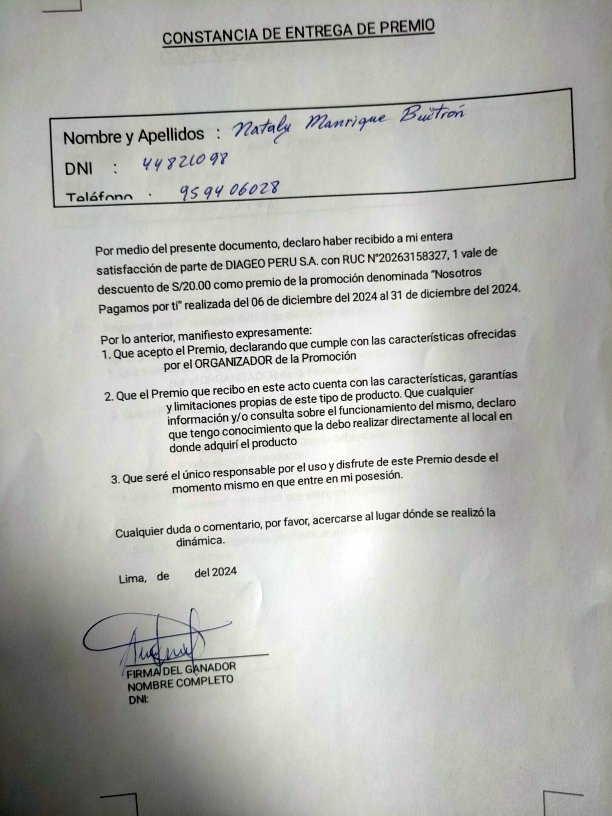 CONSTANCIA DE ENTREGA DE PREMIO
Nombre y Apellidos : Nataly Manrique Buitrón
DNI : 44821098
Teléfono : 959406028
Por medio del presente documento, declaro haber recibido a mi entera
satisfacción de parte de DIAGEO PERU S.A. con RUC N°20263158327, 1 vale de
descuento de S/20.00 como premio de la promoción denominada "Nosotros
Pagamos por ti" realizada del 06 de diciembre del 2024 al 31 de diciembre del 2024.
Por lo anterior, manifiesto expresamente:
1. Que acepto el Premio, declarando que cumple con las características ofrecidas
por el ORGANIZADOR de la Promoción
2. Que el Premio que recibo en este acto cuenta con las características, garantías
y limitaciones propias de este tipo de producto. Que cualquier
información y/o consulta sobre el funcionamiento del mismo, declaro
que tengo conocimiento que la debo realizar directamente al local en
donde adquirí el producto
3. Que seré el único responsable por el uso y disfrute de este Premio desde el
momento mismo en que entre en mi posesión.
Cualquier duda o comentario, por favor, acercarse al lugar dónde se realizó la
dinámica.
Lima, de del 2024
FIRMA DEL GANADOR
NOMBRE COMPLETO
DNI: